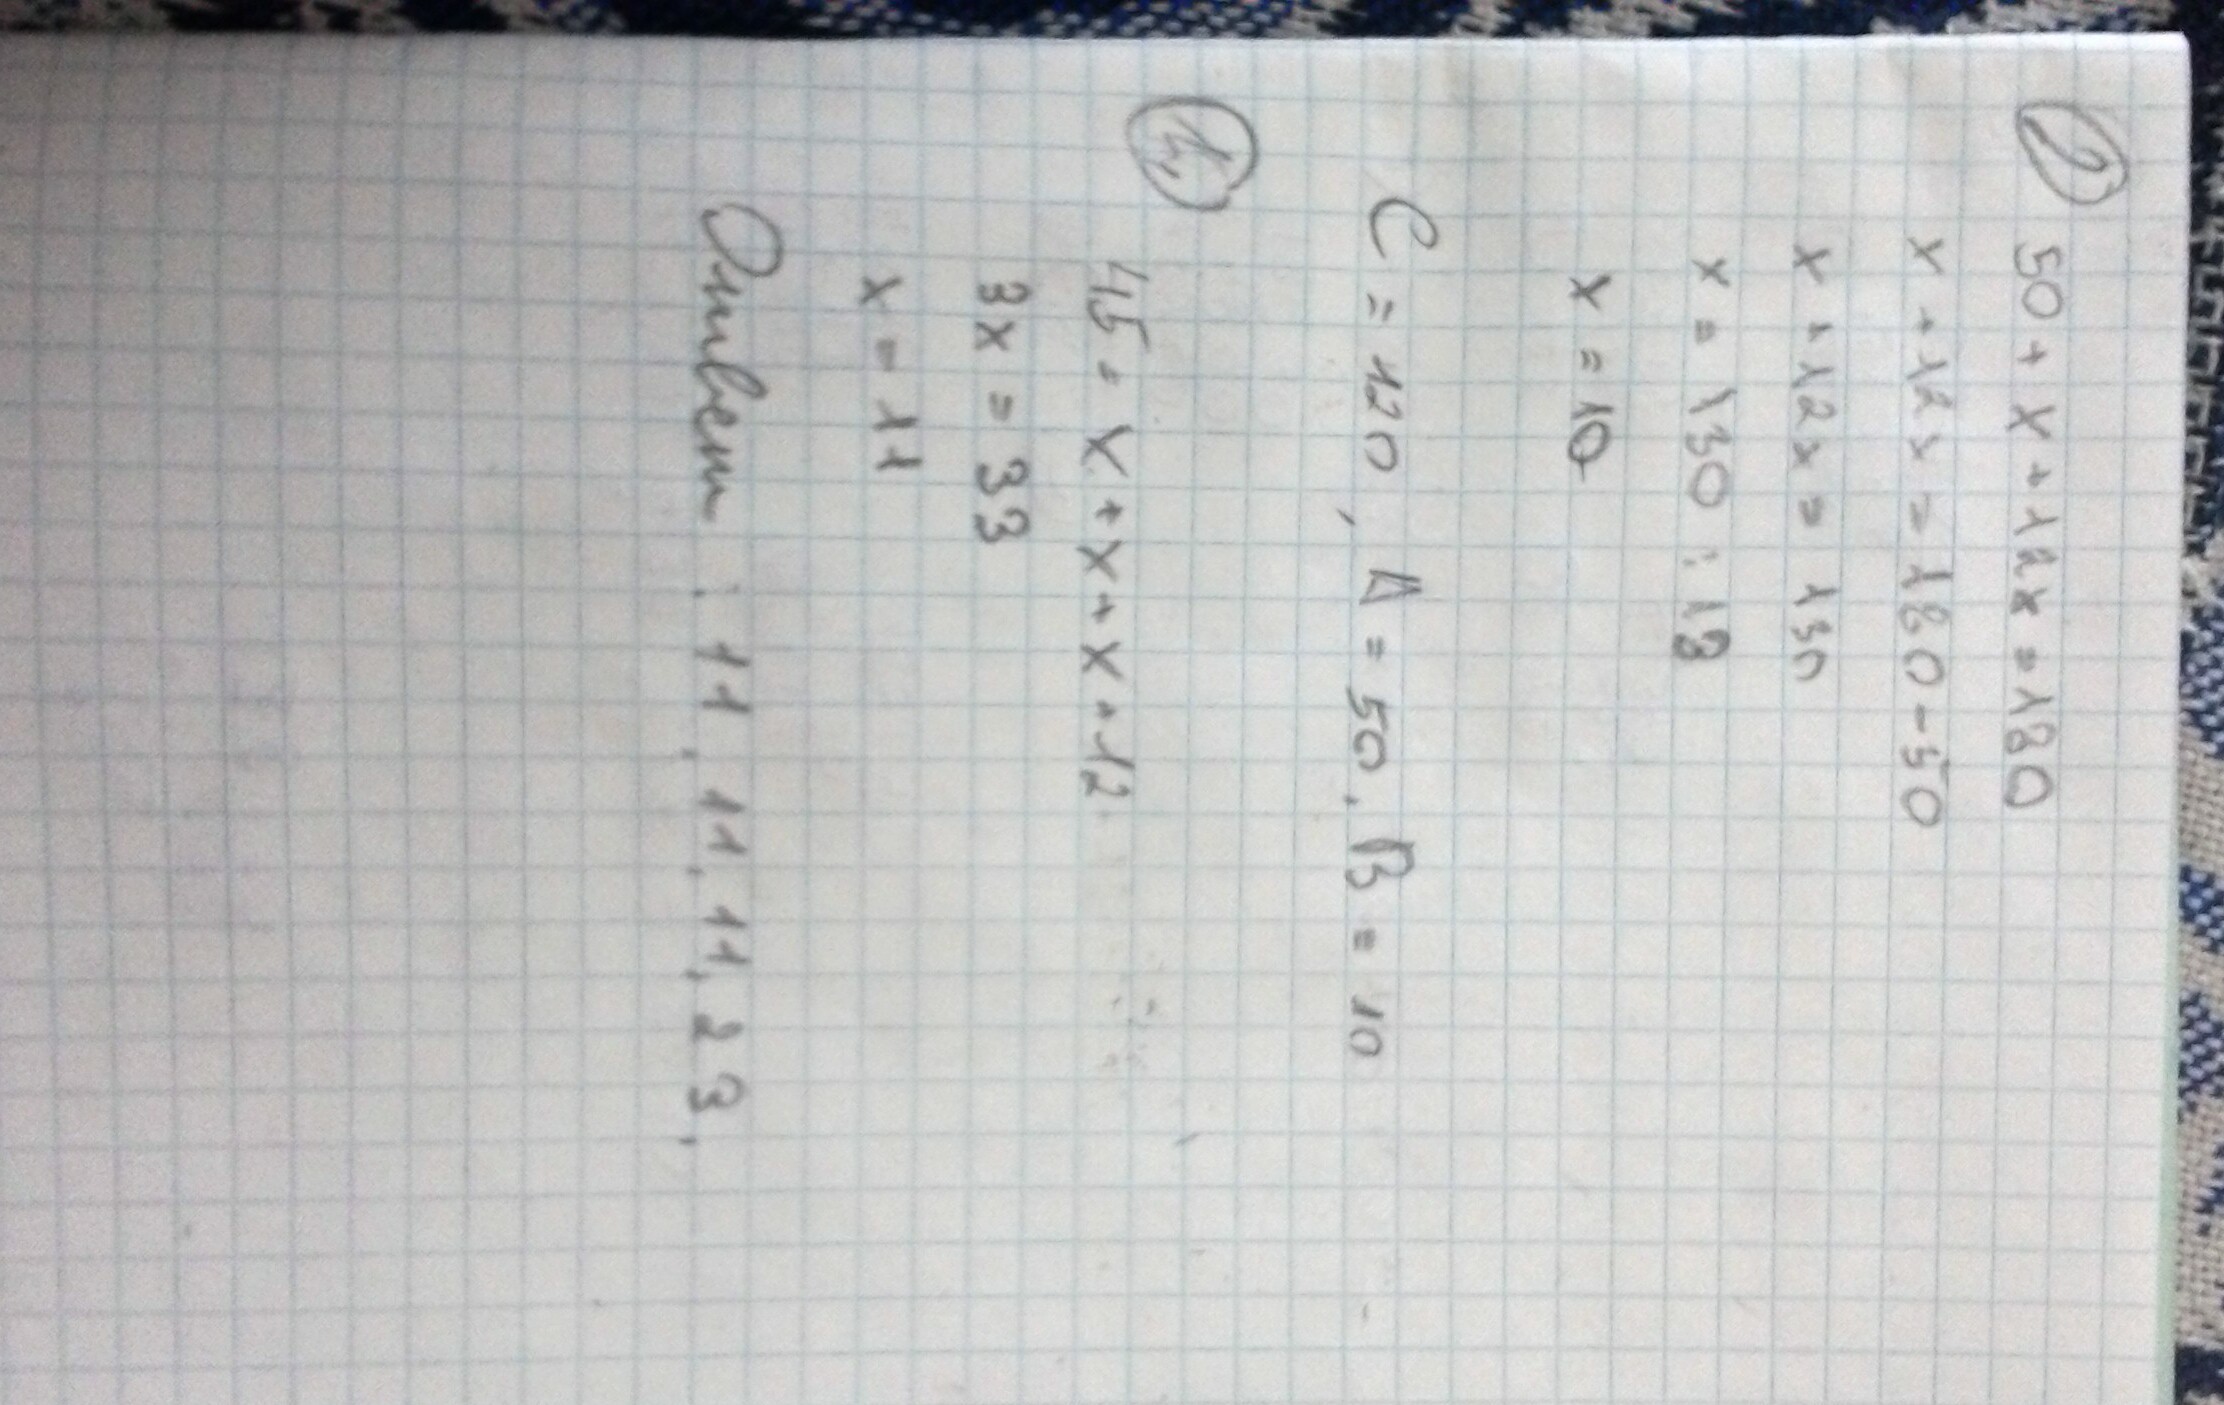 2) 50 + x + 12x = 180
x + 12x = 180 - 50
x + 12x = 130
x = 130 : 13
x = 10
C = 120, A = 50, B = 10
45 = x + x + x + 12
3x = 33
x = 11
Ответ : 11, 11, 11, 23,